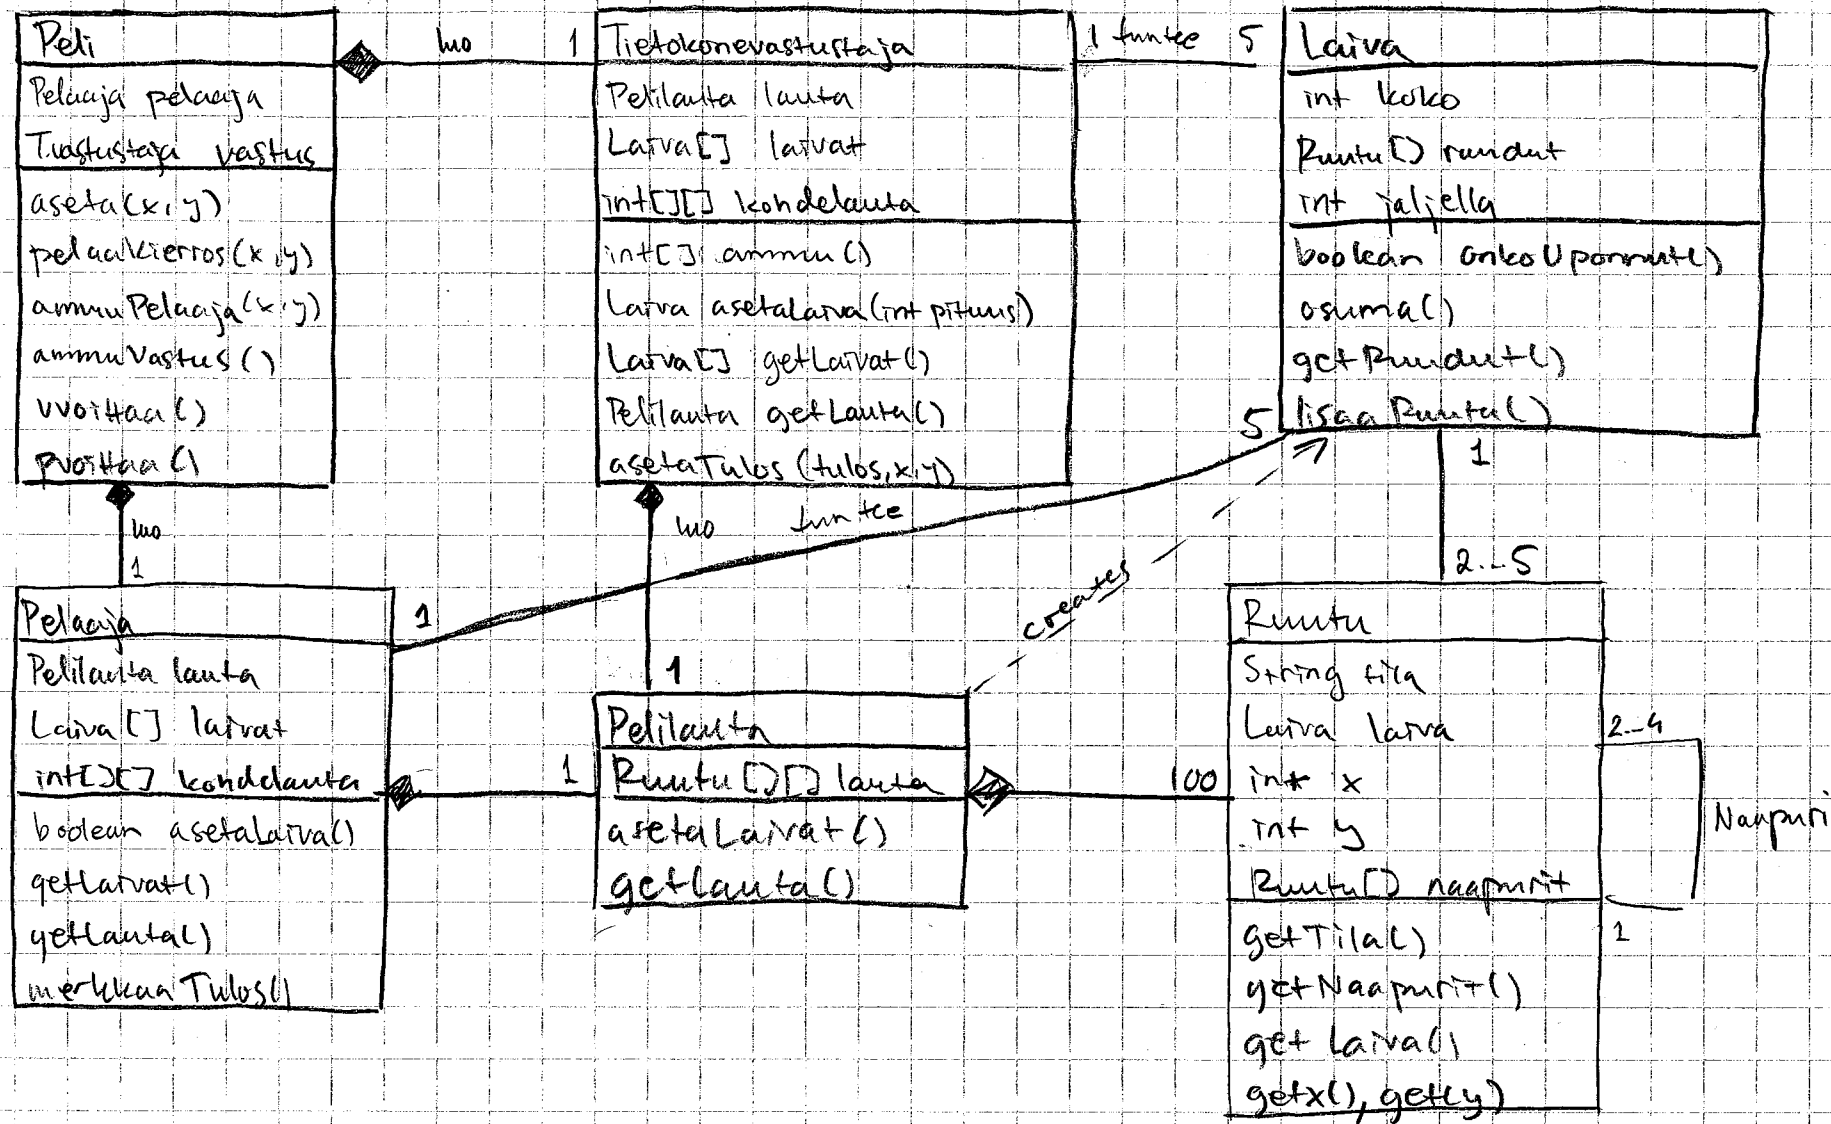 Peli
Pelaaja pelaaja
T.vastustaja vastus
aseta(x,y)
pelaaKierros(x,y)
ammuPelaaja(x,y)
ammuVastus()
vvoittaa()
pvoittaa()
luo
1
Tietokonevastustaja
Pelilauta lauta
Laiva[] laivat
int[][] kohdelauta
int[] ammu()
Laiva asetaLaiva(int pituus)
Laiva[] getLaivat()
Pelilauta getLauta()
asetaTulos(tulos,x,y)
1 tuntee 5
Laiva
int koko
Ruutu[] ruudut
int jaljella
boolean onkoUponnut()
osuma()
getRuudut()
lisaaRuutu()
5
1
2..5
luo
1
luo
tuntee
1
1
creates
Pelaaja
Pelilauta lauta
Laiva[] laivat
int[][] kohdelauta
boolean asetaLaiva()
getLaivat()
getLauta()
merkkaaTulos()
1
Pelilauta
Ruutu[][] lauta
asetaLaivat()
getLauta()
100
Ruutu
String tila
Laiva laiva
int x
int y
Ruutu[] naapurit
getTila()
getNaapurit()
getLaiva()
getx(), get(y)
2..4
Naapuri
1